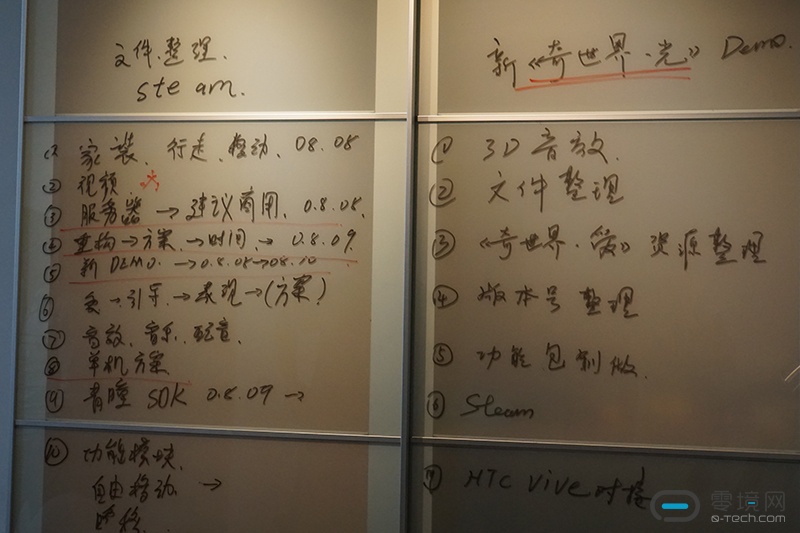 文件.整理.
steam.
① 家装、行走、移动、08.08
② 视频
③ 服务器→建议商用、0.8.08.
④ 重构→方案.→时间.→ 0.8.09.
⑤ 新DEMO.→0.8.08→08.10
⑥ →引导.→表现→(方案)
⑦ 音效、音乐、配音、
⑧ 单机方案
⑨ 青瞳 SDK 0.8.09 →
⑩ 功能模块.
自由移动 →
新《奇世界·光》Demo.
① 3D音效.
② 文件整理
③ 《奇世界·》资源整理
④ 版本号整理
⑤ 功能包制做.
⑥ Steam
⑦ HTC Vive对接
零境网
0-tech.com